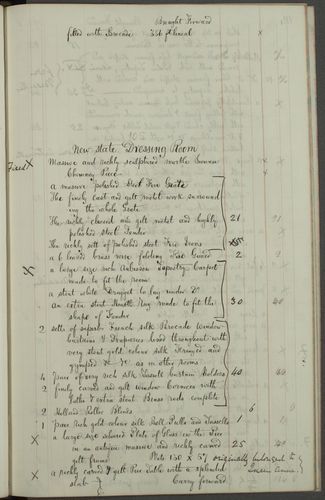 Brought Forward
filled with Brocade 356 ft lineal x
New State Dressing Room
Fixed X Massive and richly sculptured marble
Chimney Piece
a massive polished Steel Fire Grate
The finely cast and gilt metal work surround
ing the whole Grate
The richly chased and gilt metal and highly 21
polished steel Fender
The richly sett of polished steel Fire Irons
a 6 leaved brass wire folding Fire Guard 2 2
a large size rich Aubusson Tapestry Carpet
made to fit the room
a stout white Drugget to lay under Do
an extra stout Hearth Rug made to fit the 30 40
shape of Fender
2 setts of superb French silk Brocade window
curtains & Draperies lined throughout with
very stout gold colour silk Fringed and
gymped &c &c as in other rooms
4 pair of very rich silk curtain Holders 40 40
2 finely carved and gilt window Cornices with
Laths & extra stout Brass rods complete
2 Holland Roller Blinds 6
1 pair rich gold colour silk Bell Pulls and Tassells 1 1
X a large size silvered Plate of Glass on the Pier
in an antique massive and richly carved 25 40
gilt frame Plate 130 x 57 originally belonged to
X a richly carved & gilt Pier Table with a splendid
slab Carry forward